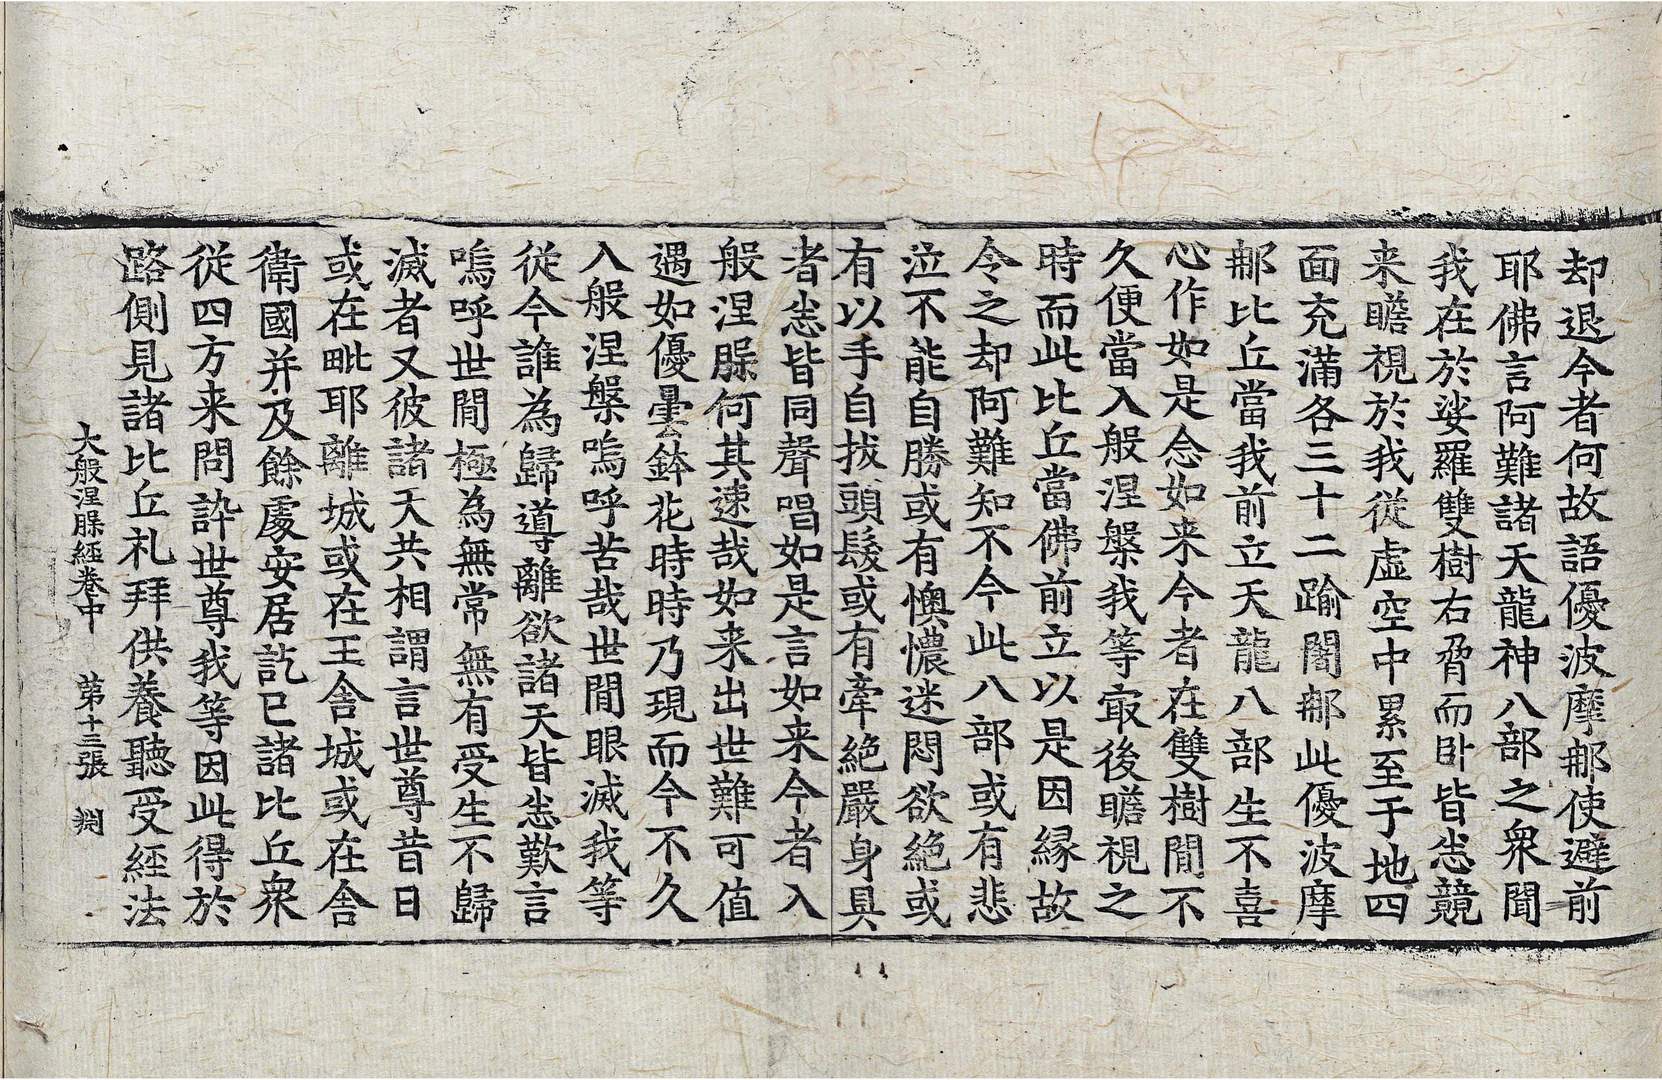 却退今者何故語優波摩那使避前
耶佛言阿難諸天龍神八部之衆聞
我在於娑羅雙樹右脅而卧皆悉競
来瞻視於我從虛空中累至于地四
面充滿各三十二踰闍那此優波摩
那比丘當我前立天龍八部生不喜
心作如是念如来今者在雙樹間不
久便當入般涅槃我等㝡後瞻視之
時而此比丘當佛前立以是因縁故
令之却阿難知不今此八部或有悲
泣不能自勝或有懊憹迷悶欲絶或
有以手自拔頭髮或有牽絶嚴身具
者悉皆同聲唱如是言如来今者入
般涅槃何其速哉如来出世難可值
遇如優曇鉢花時時乃現而今不久
入般涅槃嗚呼苦哉世間眼滅我等
從今誰為歸導離欲諸天皆悉歎言
嗚呼世間極為無常無有受生不歸
滅者又彼諸天共相謂言世尊昔日
或在毗耶離城或在王舍城或在舍
衛國并及餘處安居訖已諸比丘衆
從四方来問訊世尊我等因此得於
路側見諸比丘礼拜供養聽受經法
大般涅槃經卷中 第十三張 淵